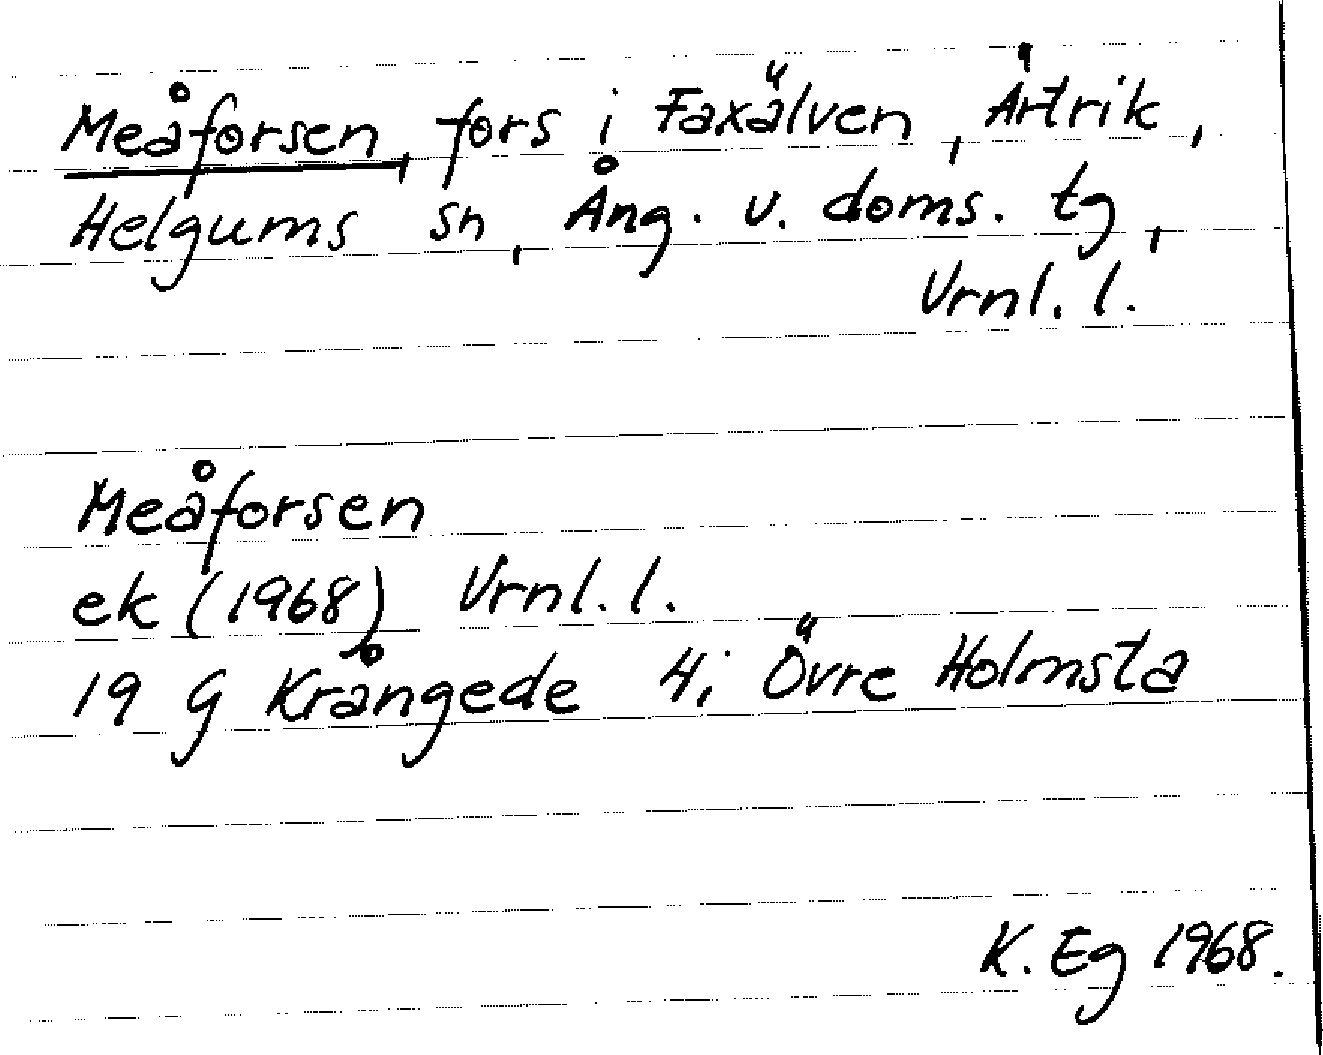 Meåforsen, fors i Faxälven, Ärtrik,
Helgums sn, Ång. v. doms. tg,
Vrnl. l.
Meåforsen
ek (1968) Vrnl. l.
19 G Krångede 4; Övre Holmsta
K. Eg 1968.